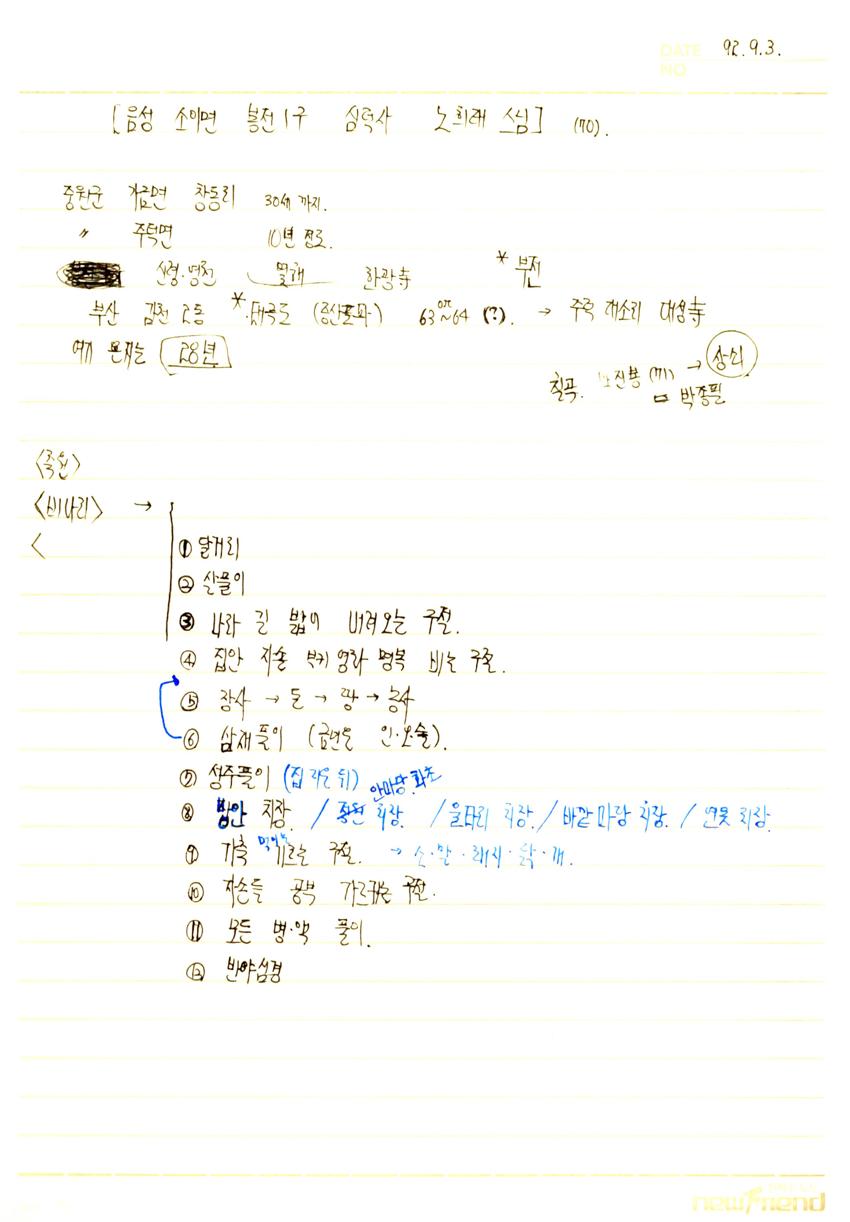 DATE 92.9.3.
NO
[음성 소이면 봉전1구 심덕사 노희래 스님] (70).
중원군 가금면 창동리 30세 까지.
〃 주덕면 10년 정도.
신령·영천 화광寺 * 부전
부산 감천 2동 *.태극도 63~64 (?). → 주덕 대소리 대성寺
여기 온지는 28년
칠곡. 노진봉 (71) → 상쇠
박종필
<축원>
<비나리> →
<
① 달거리
② 살풀이
③ 나라 긴 밟이 내려오는 구절.
④ 집안 자손 부귀 영화 명복 비는 구절.
⑤ 장사 → 돈 → 땅 → 농사
⑥ 삼재풀이 (금년은 인·오·술).
⑦ 성주풀이 (집 지은 뒤) 안마당.화초
⑧ 방안 치장. / 후원 치장. / 울타리 치장. / 바깥마당 치장. / 연못 치장.
⑨ 가축 먹이는 기르는 구절. → 소·말·돼지·닭·개.
⑩ 자손들 공부 가르키는 구절.
⑪ 모든 병·액 풀이.
⑫ 반야심경
newfriend